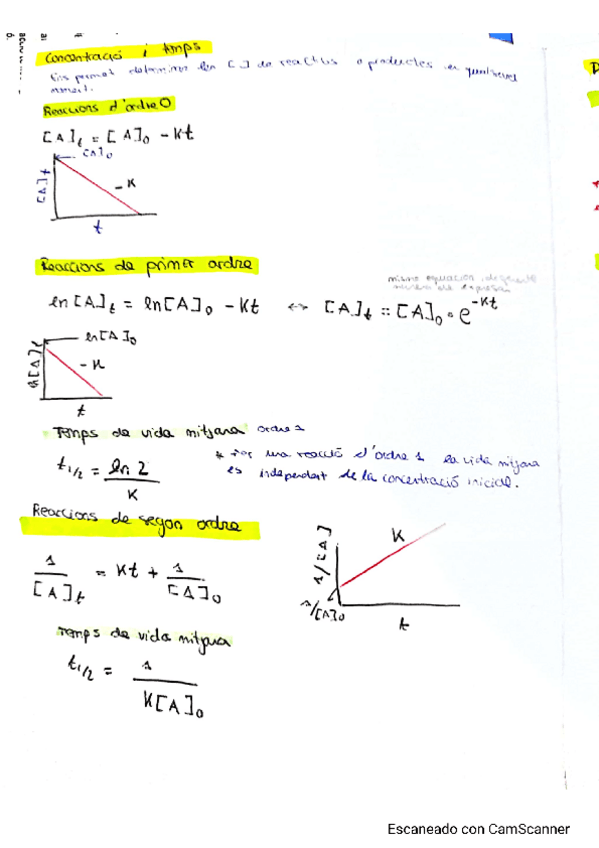 Concentració i temps
Ens permet determinar les [ ] de reactius o productes en qualsevol
moment.
Reaccions d'ordre 0
[A]t = [A]0 - Kt
[A]0
[A]t
- K
t
Reaccions de primer ordre
mismo equación, diferente
manera de expresar
ln[A]t = ln[A]0 - Kt ↔ [A]t = [A]0 · e^-Kt
ln[A]0
ln[A]t
- K
t
Temps de vida mitjana ordre 1
* Per una reacció d'ordre 1 la vida mitjana
es independent de la concentració inicial.
t1/2 = ln 2 / K
Reaccions de segon ordre
1/[A]t = Kt + 1/[A]0
1/[A]
K
1/[A]0
t
Temps de vida mitjana
t1/2 = 1 / K[A]0
Escaneado con CamScanner